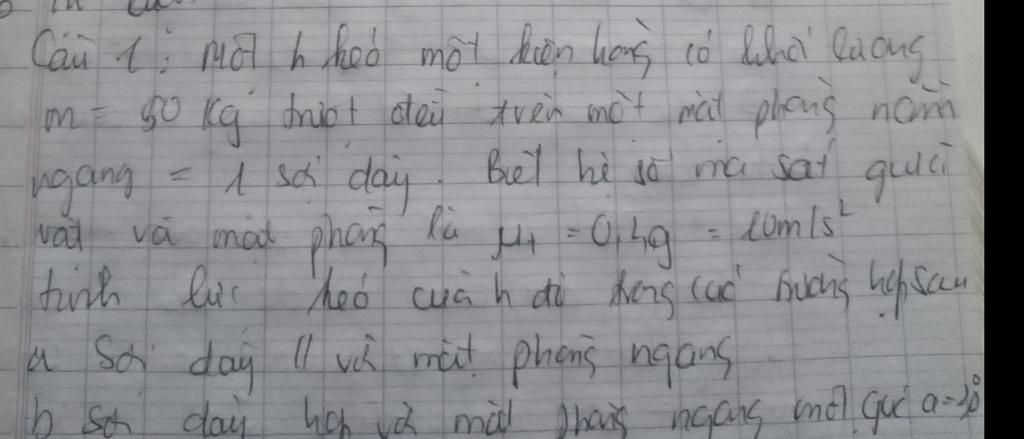 Câu 1: Một h kéo một kiện hàng có khối lượng
m = 50 kg trượt đều trên một mặt phẳng nằm
ngang = 1 sợi dây. Biết hệ số ma sát giữa
vật và mặt phẳng là μt = 0,2, g = 10m/s²
tính lực kéo của h đó trong các trường hợp sau
a Sợi dây // với mặt phẳng ngang
b sợi dây hợp với mặt phẳng ngang một góc a=30°